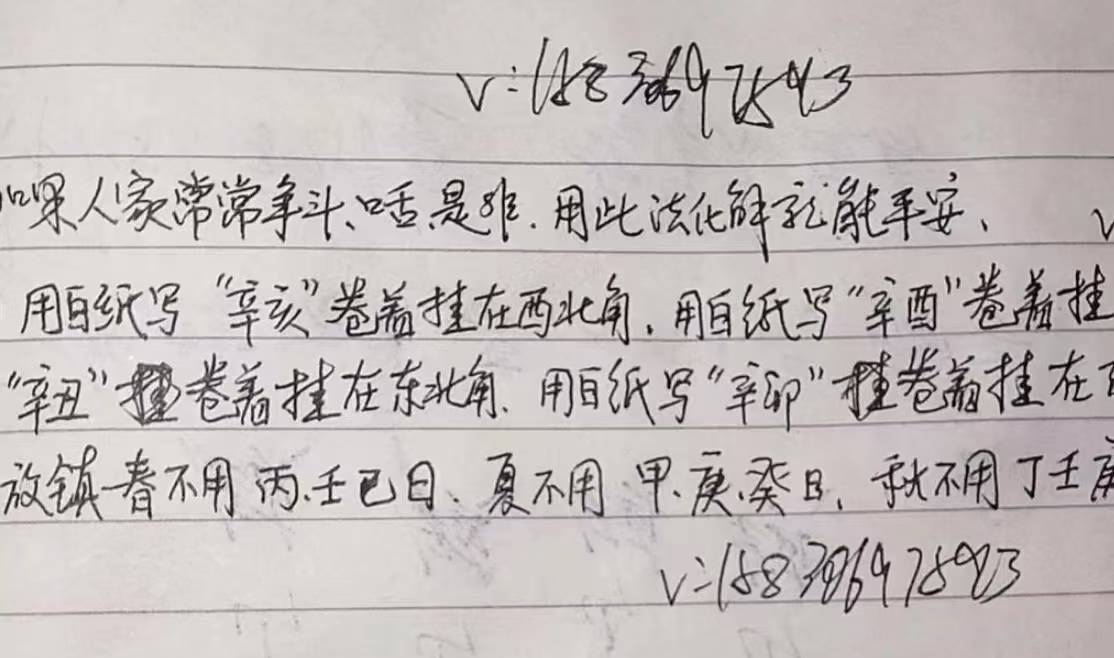 V:15838697543
如果人家常常争斗、口舌是非.用此法化解就能平安、
用白纸写“辛亥”卷着挂在西北角.用白纸写“辛酉”卷着挂
“辛丑”卷着挂在东北角.用白纸写“辛卯”挂卷着挂在
放镇一春不用丙.壬已日.夏不用甲.庚.癸日,秋不用丁壬庚
V:15838697543